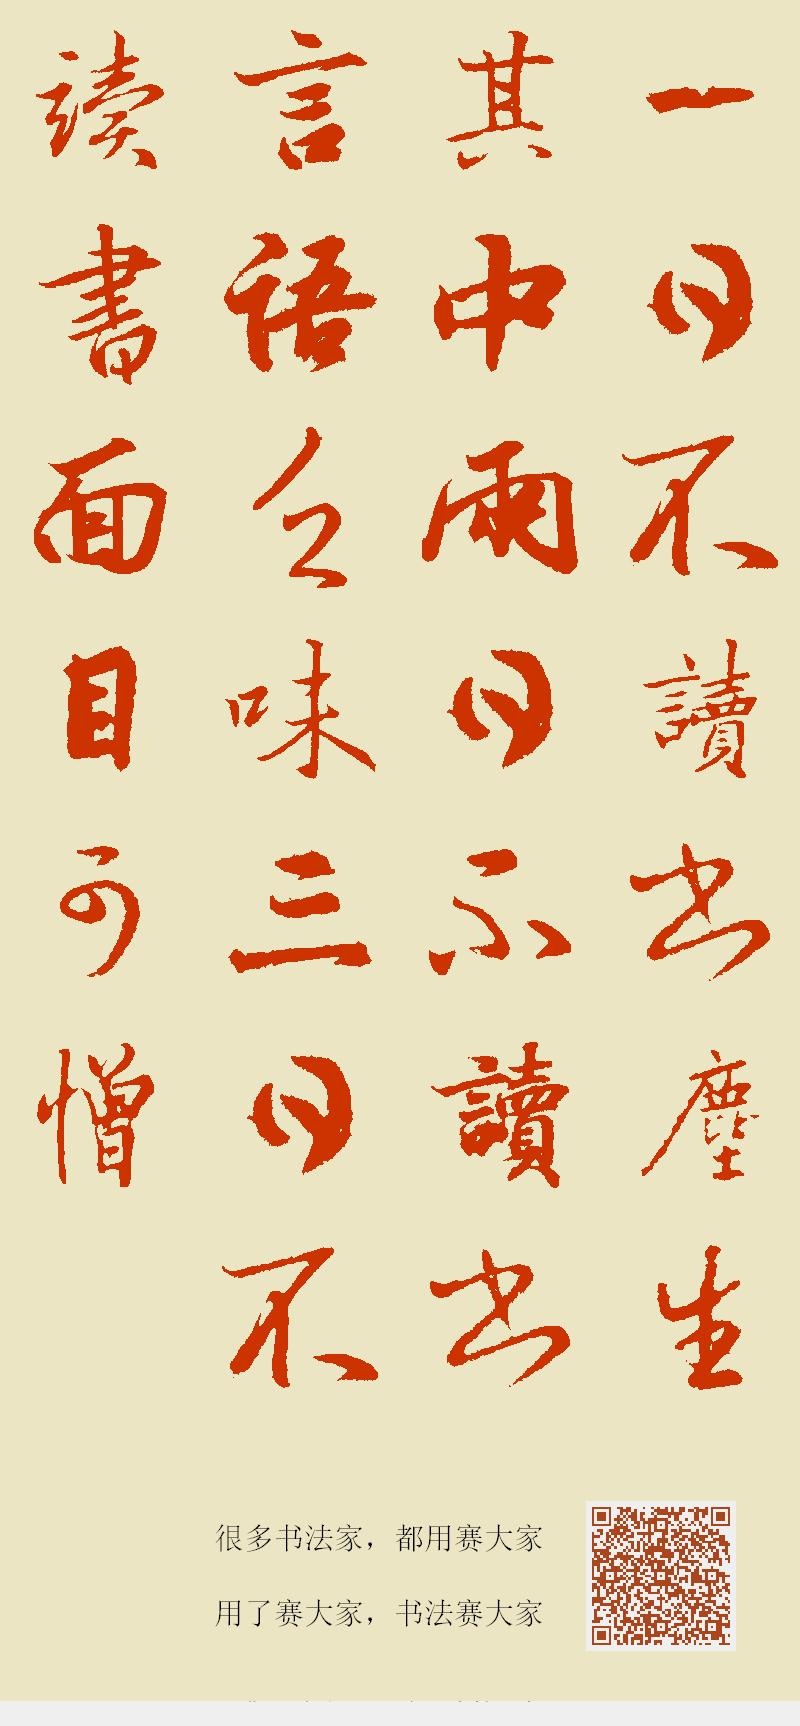 一日不讀书塵生
其中兩日不讀书
言語乏味三日不
讀書面目可憎
很多书法家，都用赛大家
用了赛大家，书法赛大家